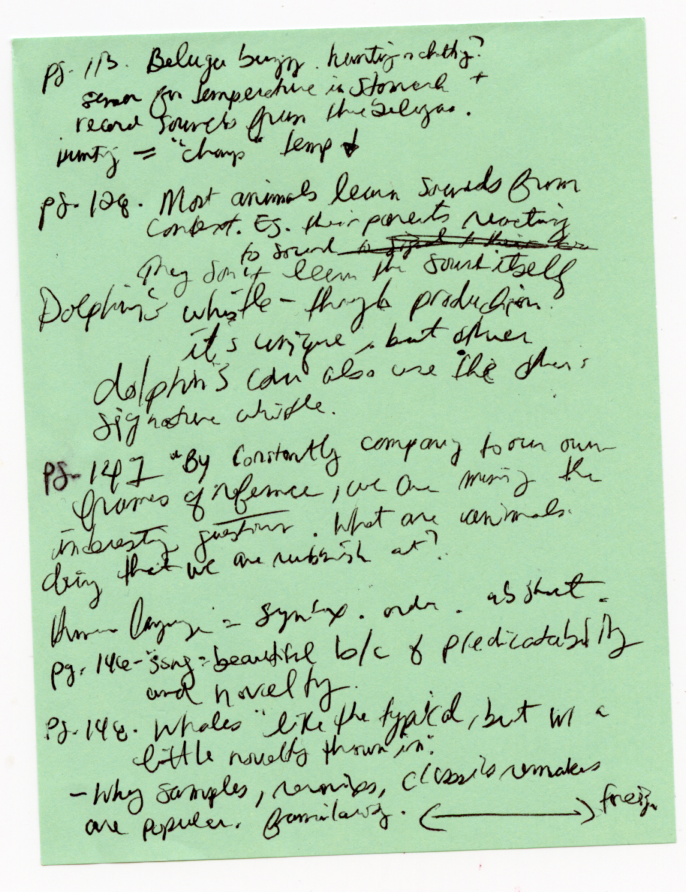 pg. 113. Beluga buzz. hunting or chatting?
sensor for temperature in stomach +
record sounds from the belugas.
hunting = "chomp" temp ↓
pg. 128. Most animals learn sounds from
context. Eg. their parents reacting
to sound
They don't learn the sound itself
Dolphin's whistle - through production.
it's unique, but other
dolphins can also use the others
signature whistle.
pg. 147 "By constantly comparing to our own
frames of reference, we are missing the
interesting questions. What are animals
doing that we are rubbish at?
Human language = syntax. order. abstract.
pg. 146 - song = beautiful b/c of predicatability
and novelty.
pg. 148. Whales "like the typical, but w/ a
little novelty thrown in."
- Why samples, remixes, classics remakes
are popular. familiarity. ⟷ foreign